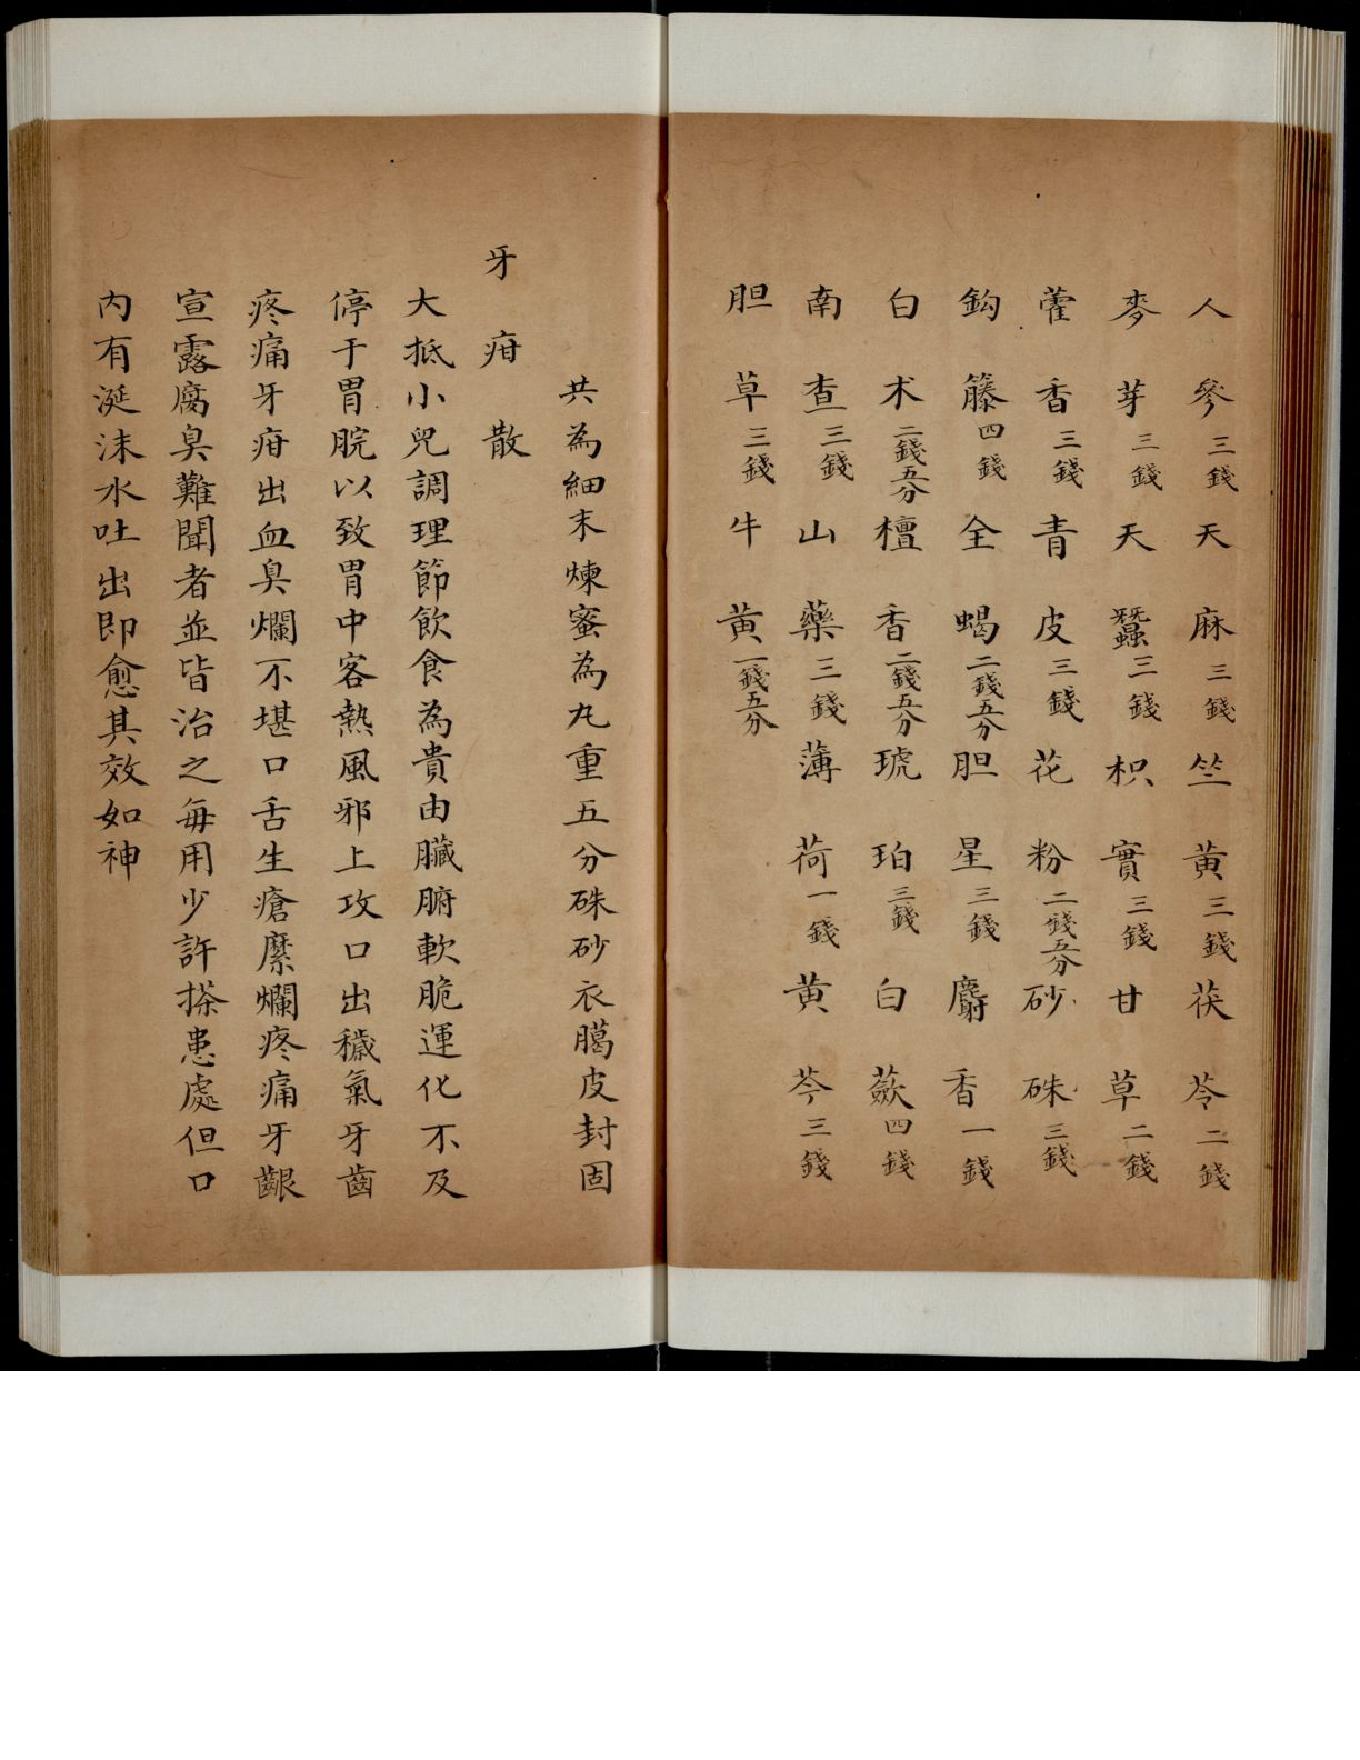 人參三錢天麻三錢竺黃三錢茯苓二錢
麥芽三錢天蠶三錢枳實三錢甘草二錢
藿香三錢青皮三錢花粉二錢五分砂硃三錢
鈎籐四錢全蝎二錢五分胆星三錢麝香一錢
白术二錢五分檀香二錢五分琥珀三錢白蘞四錢
南查三錢山藥三錢薄荷一錢黃芩三錢
胆草三錢牛黃一錢五分
共為細末煉蜜為丸重五分硃砂衣臈皮封固
牙疳散
大抵小兒調理節飲食為貴由臟腑軟脆運化不及
停于胃脘以致胃中客熱風邪上攻口出穢氣牙齒
疼痛牙疳出血臭爛不堪口舌生瘡糜爛疼痛牙齦
宣露腐臭難聞者並皆治之每用少許搽患處但口
内有涎沫水吐出即愈其效如神